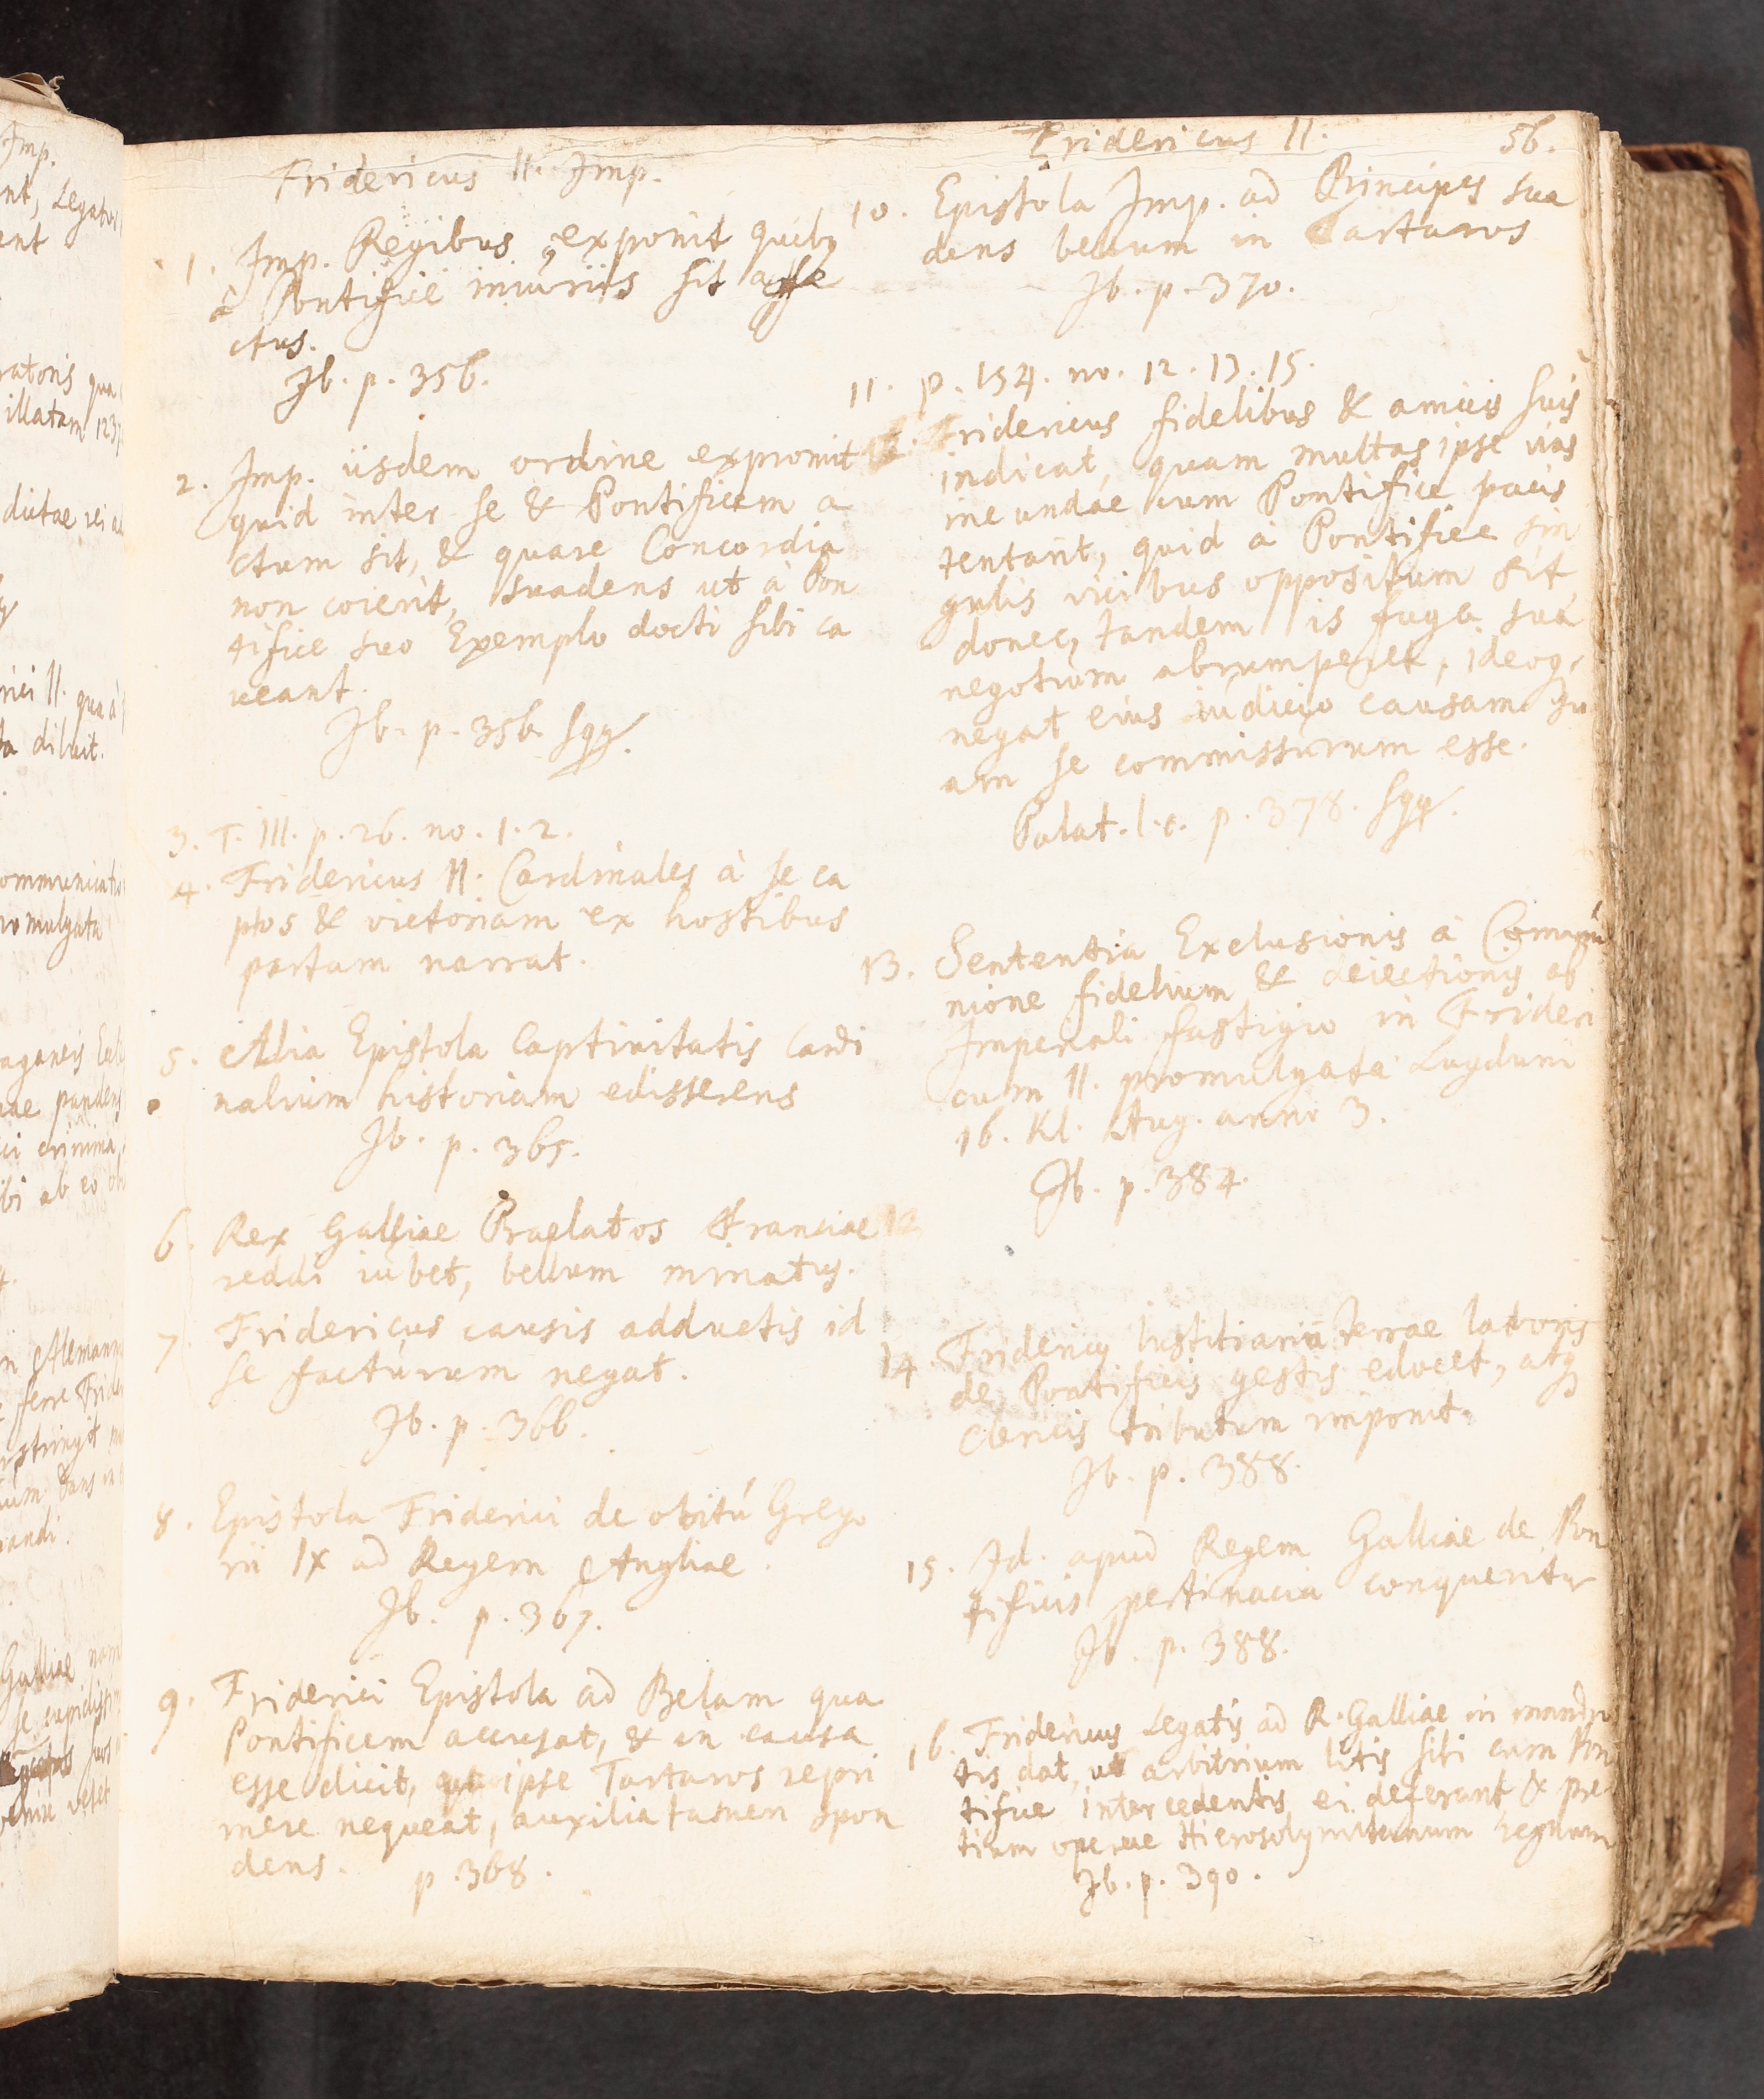 Fridericus II. Imp.
1. Imp. Regibus exponit quibq
à Pontifice iniuriis sit affe
ctus.
Ib. p. 356.
2. Imp. iisdem ordine expromit
quid inter se & Pontificem a
ctum sit, & quare Concordia
non coierit, suadens ut à Pon
tifice suo Exemplo docti sibi ca
veant.
Ib. p. 356 sqq.
3. T. III. p. 26. no. 1. 2.
4. Fridericus II. Cardinales à se ca
ptos & victoriam ex hostibus
partam narrat.
5. Alia Epistola Captivitatis Cardi
nalium historiam edisserens
Ib. p. 365.
6. Rex Galliae Praelatos Franciae
reddi iubet, bellum minatus.
7. Fridericus causis adductis id
se facturum negat.
Ib. p. 366.
8. Epistola Friderici de obitu Grego
rii IX ad Regem Angliae.
Ib. p. 367.
9. Friderici Epistola ad Belam qua
Pontificem accusat, & in causa
esse dicit, quo ipse Tartaros repri
mere nequeat, auxilia tamen spon
dens. p. 368.
Fridericus II. 56.
10. Epistola Imp. ad Principes sua
dens bellum in Tartaros
Ib. p. 370.
11. p. 154. no. 12. 13. 15.
12. Fridericus fidelibus & amicis suis
indicat, quam multas ipse vias
ineundae cum Pontifice pacis
tentarit, quid à Pontifice sin
gulis vicibus oppositum sit,
donec tandem is fuga sua
negotium abrumperet, ideoq
negat eius iudicio causam su
am se commissurum esse.
Palat. l. c. p. 378. sqq.
13. Sententia Exclusionis à Commu
nione fidelium & deiectionis ab
Imperiali fastigio in Frideri
cum II. promulgata Lugduni
16. Kl. Aug. anno 3.
Ib. p. 384.
14. Fridericq Iustitiariis Terrae laboris
de Pontificis gestis edocet, atq
clericis tributum imponit.
Ib. p. 388.
15. Id. apud Regem Galliae de Pon
tificis pertinacia conqueritur
Ib. p. 388.
16. Fridericus Legatis ad R. Galliae in manda
tis dat, ut arbitrium litis sibi cum Pon
tifice intercedentis ei deferant, & pre
tium operae Hierosolymitanum regnum
Ib. p. 390.